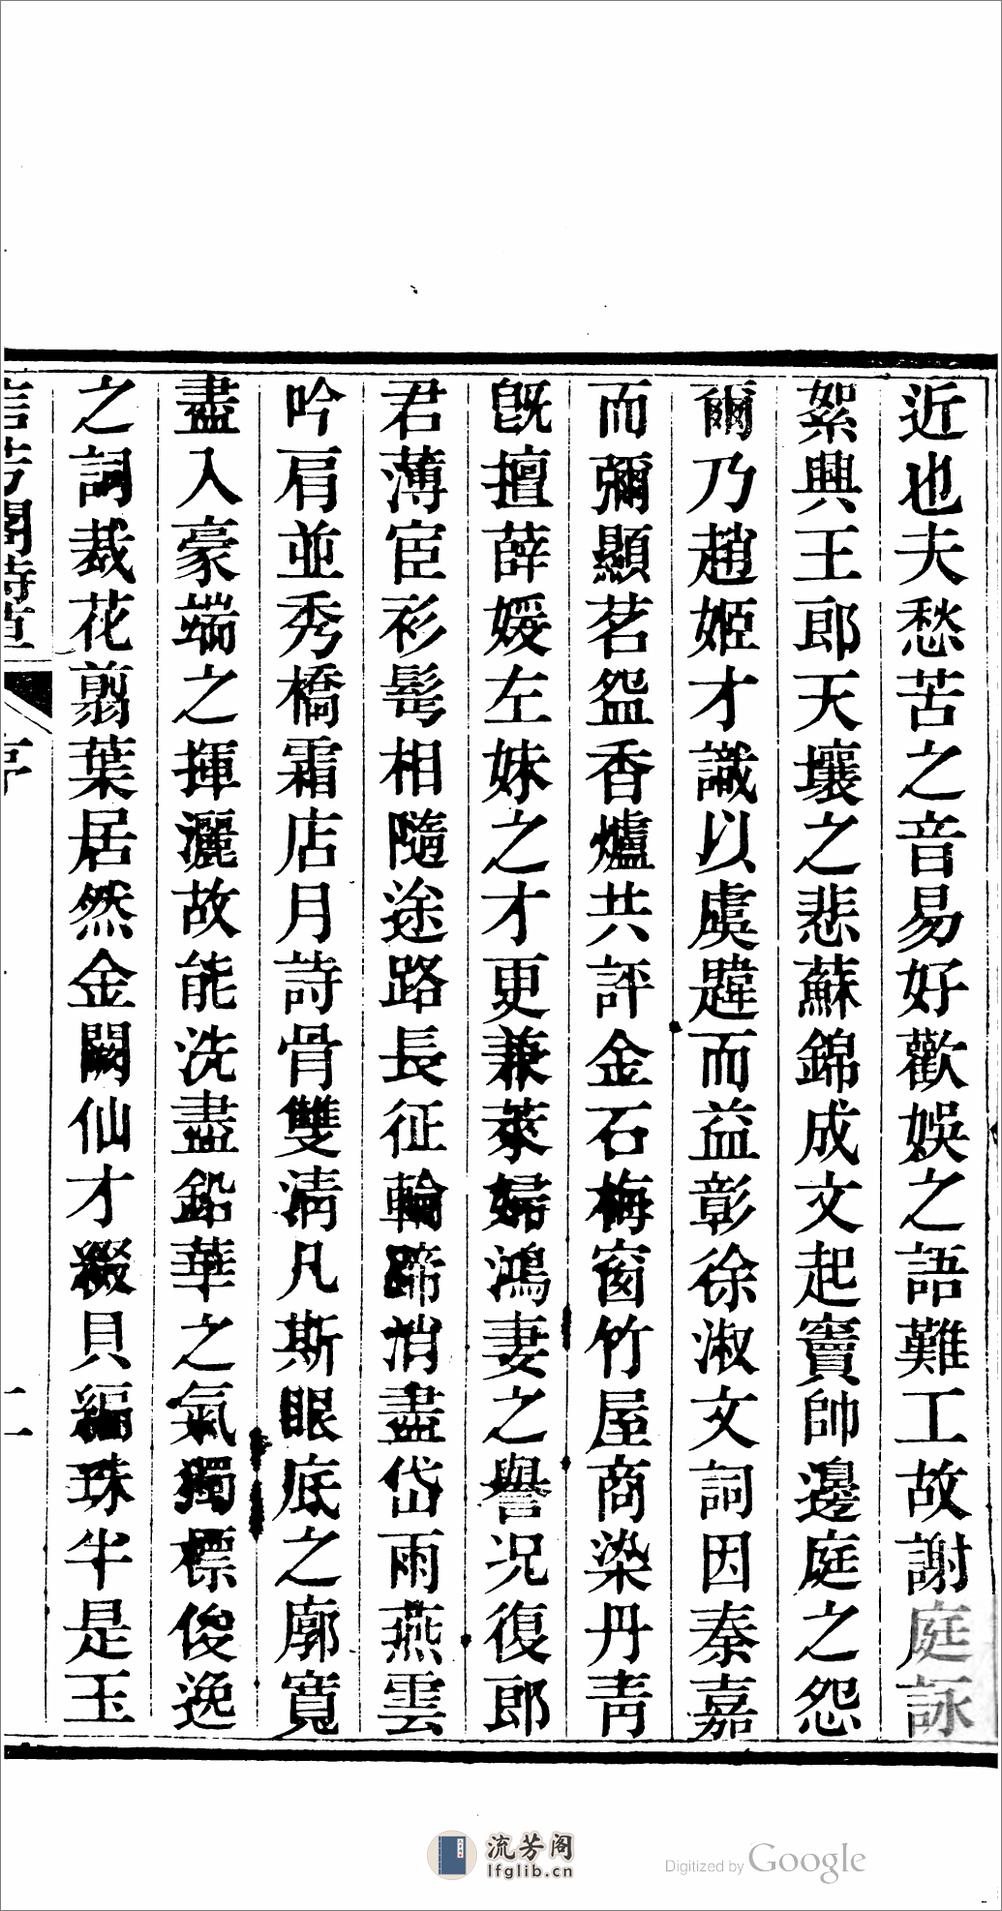 近也夫愁苦之音易好歡娛之語難工故謝庭詠
絮興王郎天壤之悲蘇錦成文起竇帥邊庭之怨
爾乃趙姬才識以虞韙而益彰徐淑文詞因秦嘉
而彌顯茗盌香爐共評金石梅窗竹屋商染丹青
旣擅薛媛左妹之才更兼萊婦鴻妻之譽况復郎
君薄宦衫髩相隨途路長征輪蹄消盡岱雨燕雲
吟肩並秀橋霜店月詩骨雙淸凡斯眼底之廓寬
盡入豪端之揮灑故能洗盡鉛華之氣獨標俊逸
之詞裁花翦葉居然金闕仙才綴貝編珠半是玉
信芳閣詩草
序
二
流芳阁
lfglib.cn
Digitized by Google